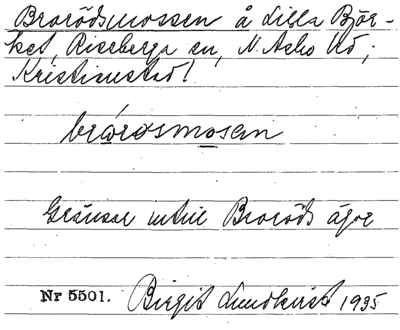 Brorödsmossen å Lilla Björ-
ket, Riseberga sn, N. Åsbo hd;
Kristianstad l.
brǿrøsmosen
Gränsar intill Broröds ägor
Nr 5501. Birgit Lundkvist 1935